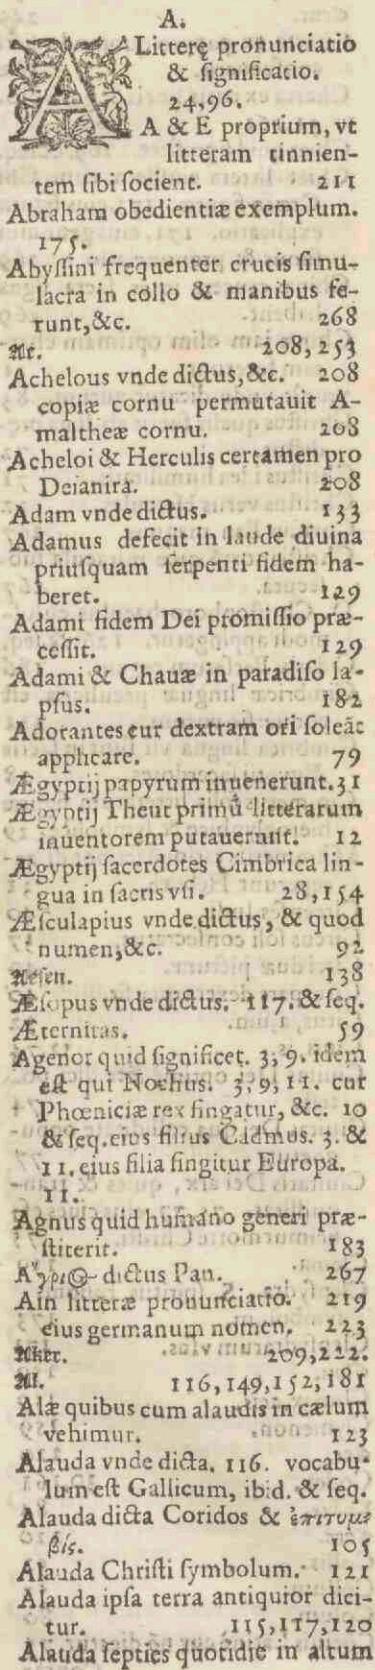 A.
A Litterę pronunciatio
& significatio.
24,96.
A & E proprium, vt
litteram tinnien-
tem sibi socient. 211
Abraham obedientiæ exemplum.
175.
Abyssini frequenter crucis simu-
lacra in collo & manibus fe-
runt, &c. 268
Ac. 208, 253
Achelous vnde dictus, &c. 208
copiæ cornu permutauit A-
maltheæ cornu. 208
Acheloi & Herculis certamen pro
Deianira. 208
Adam vnde dictus. 133
Adamus defecit in laude diuina
priusquam serpenti fidem ha-
beret. 129
Adami fidem Dei promissio præ-
cessit. 129
Adami & Chauæ in paradiso la-
psus. 182
Adorantes cur dextram ori soleāt
applicare. 79
Ægyptij papyrum inuenerunt. 31
Ægyptij Theut primū litterarum
inuentorem putauerunt. 12
Ægyptij sacerdotes Cimbrica lin-
gua in sacris vsi. 28, 154
Æsculapius vnde dictus, & quod
numen, &c. 92
Aesen. 138
Æsopus vnde dictus. 117. & seq.
Æternitas. 59
Agenor quid significet. 3, 9. idem
est qui Nochus. 3, 9, 11. cur
Phœniciæ rex fingatur, &c. 10
& seq. eius filius Cadmus. 3. &
11. eius filia fingitur Europa.
11.
Agnus quid humano generi præ-
stiterit. 183
Ἄγριος dictus Pan. 267
Ain litteræ pronunciatio. 219
eius germanum nomen. 223
Aker. 209, 222.
Al. 116, 149, 152, 181
Alæ quibus cum alaudis in cælum
vehimur. 123
Alauda vnde dicta. 116. vocabu-
lum est Gallicum, ibid. & seq.
Alauda dicta Coridos & ἐπιτυμ-
βίς. 105
Alauda Christi symbolum. 121
Alauda ipsa terra antiquior dici-
tur. 115, 117, 120
Alauda septies quotidie in altum